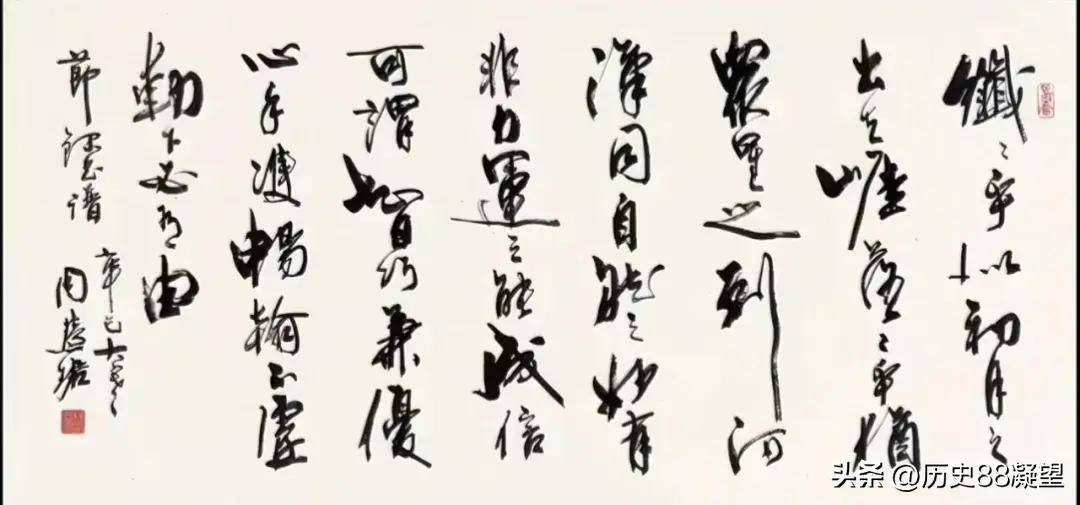 纖〻乎似初月之
出天崖落〻乎猶
衆星之列河
漢同自然之妙有
非力運之能成信
可謂智巧兼優
心手雙暢翰不虛
動下必有由
節錄書譜
辛巳
周慧珺
头条 @历史88凝望